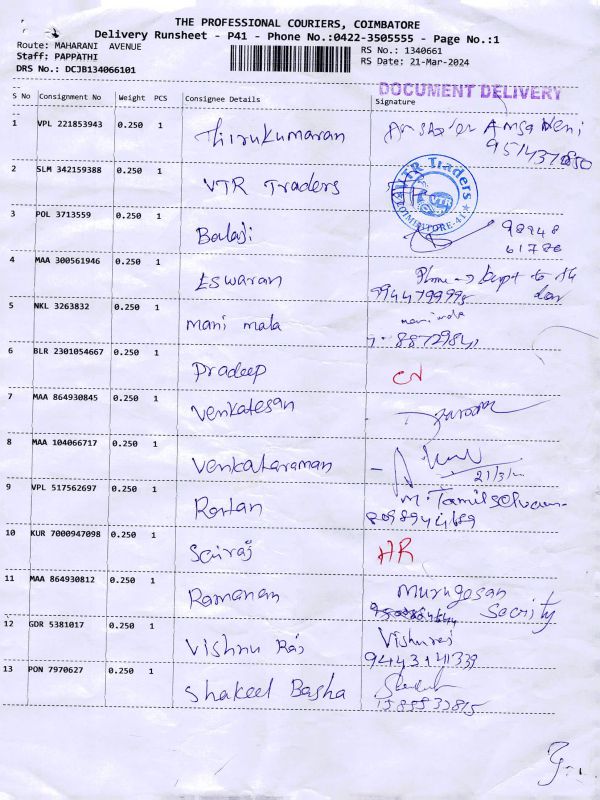 THE PROFESSIONAL COURIERS, COIMBATORE
Delivery Runsheet - P41 - Phone No.:0422-3505555 - Page No.:1
Route: MAHARANI AVENUE
RS No.: 1340661
Staff: PAPPATHI
RS Date: 21-Mar-2024
DRS No.: DCJB134066101
DOCUMENT DELIVERY
S No Consignment No Weight PCS Consignee Details Signature
1 VPL 221853943 0.250 1 Thirukumaran
2 SLM 342159388 0.250 1 VTR Traders
VTR Traders
VTR
COIMBATORE-41
3 POL 3713559 0.250 1 Balaji
4 MAA 300561946 0.250 1 Eswaran Phone → kept to
9944799998
5 NKL 3263832 0.250 1 mani mala
6 BLR 2301054667 0.250 1 Pradeep
7 MAA 864930845 0.250 1 Venkatesan
8 MAA 104066717 0.250 1 Venkataraman
9 VPL 517562697 0.250 1 M. Tamilselvan
10 KUR 7000947098 0.250 1 Sairaj HR
11 MAA 864930812 0.250 1 Ramanam Murugesan
Secrity
12 GDR 5381017 0.250 1 Vishnu Raj Vishnuraj
9443141339
13 PON 7970627 0.250 1 Shakeel Basha